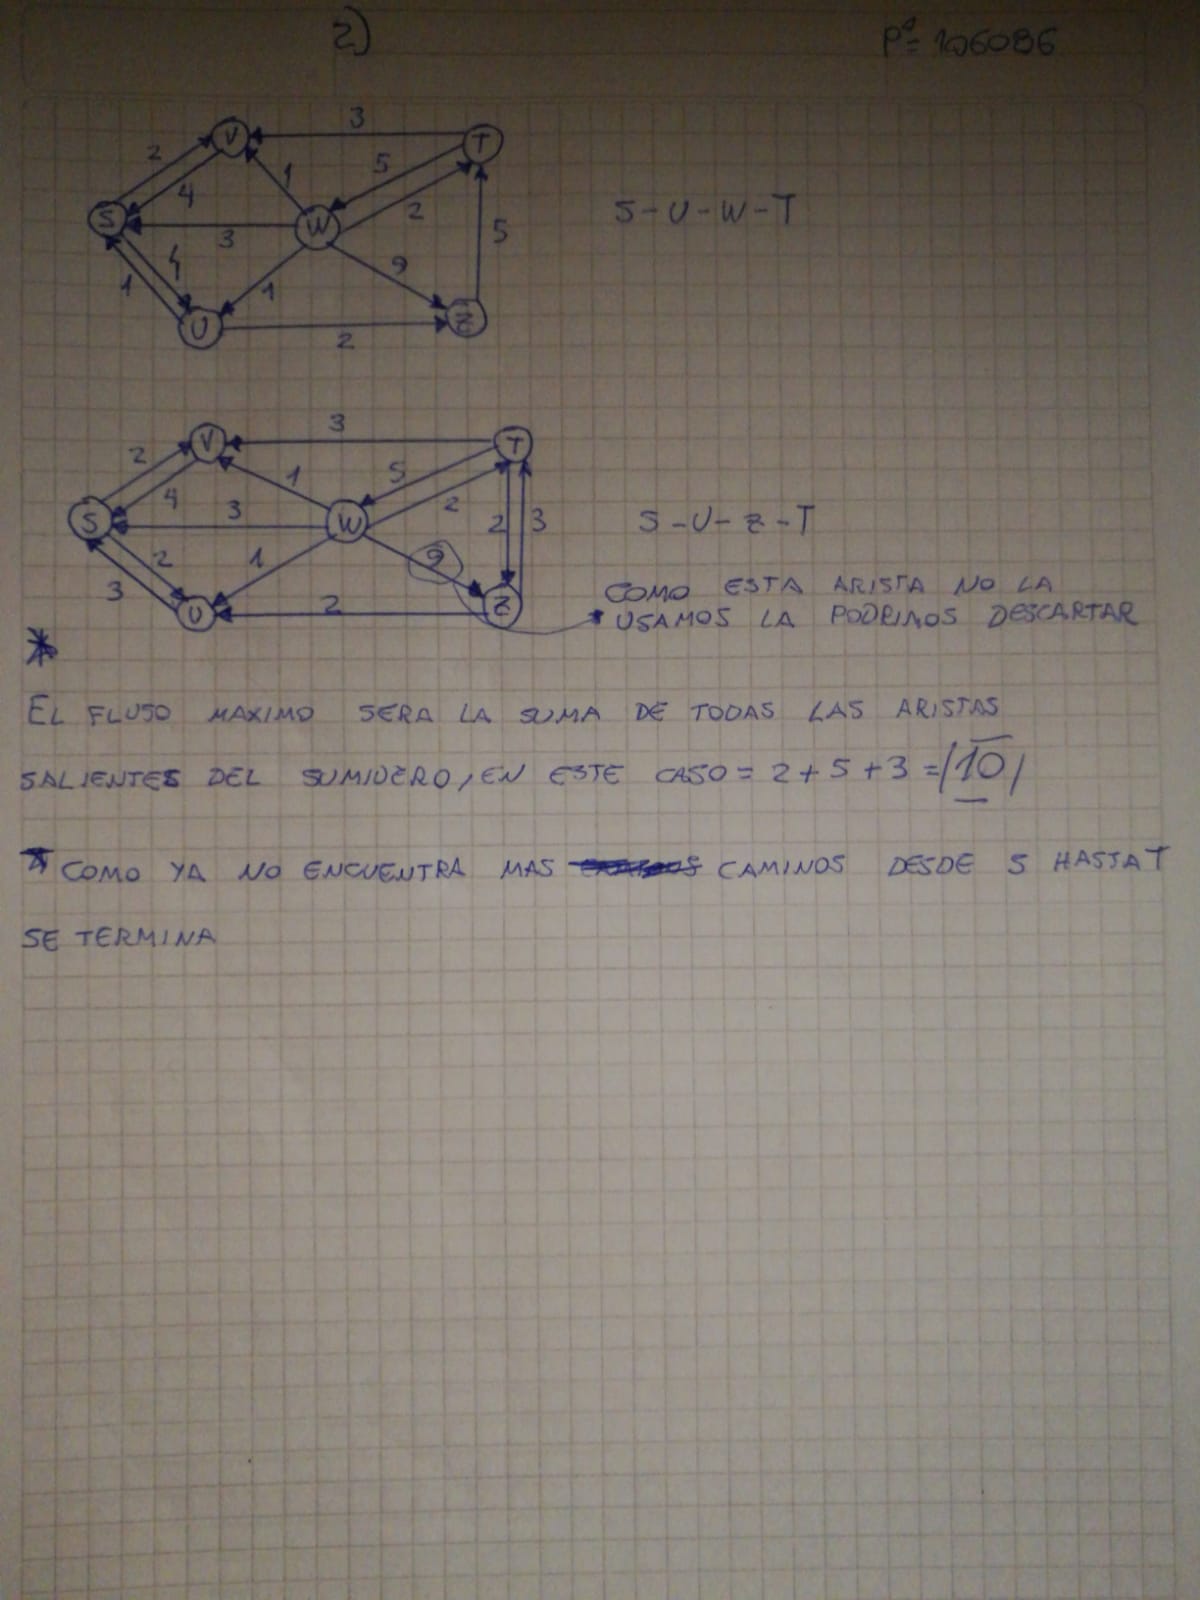 2)
Pº= 106086
V
3
T
2
5
4
1
S
3
W
2
5
S-U-W-T
4
1
1
9
U
2
Z
V
3
T
2
1
5
4
3
2
S
W
2
3
S-U-Z-T
2
1
9
3
U
2
Z
COMO ESTA ARISTA NO LA
USAMOS LA PODRIAOS DESCARTAR
*
EL FLUJO MAXIMO SERA LA SUMA DE TODAS LAS ARISTAS
SALIENTES DEL SUMIDERO, EN ESTE CASO = 2+5+3 = 10
* COMO YA NO ENCUENTRA MAS CAMINOS DESDE S HASTA T
SE TERMINA